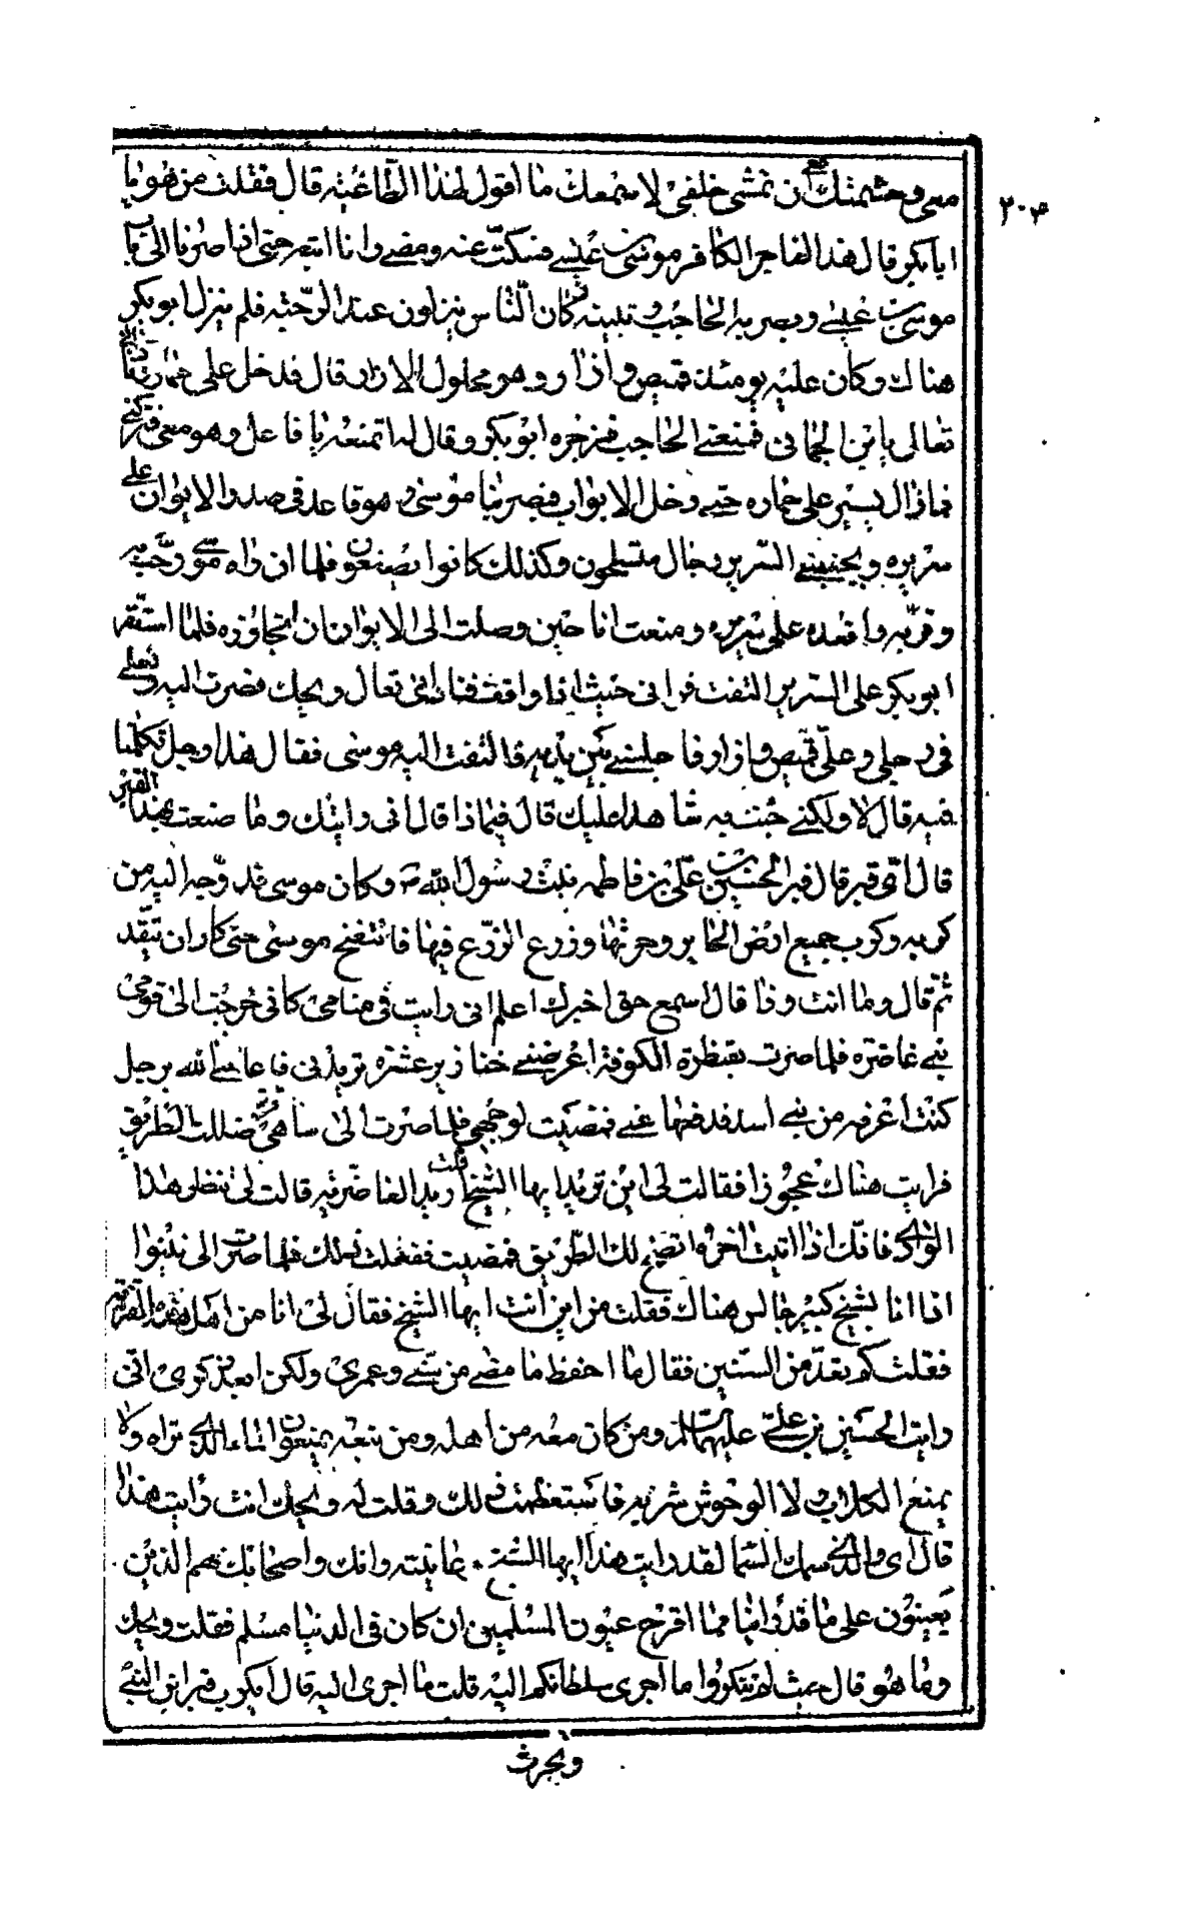 معى وحشمتك ان تمشى خلفى لاسمعك ما اقول لهذا الطاغية قال فقلت من هو يا
ابا بكر قال هذا الفاجر الكافر موسى بن عيسى فسكتّ عنه ومضى وانا اتبعه حتى اذا صرنا الى باب
موسى بن عيسى وبصر به الحاجب وتبينه وكان الناس ينزلون عند الرحبة فلم ينزل ابو بكر
هناك وكان عليه يومئذ قميص وازار وهو محلول الازار قال فدخل على حماره وناداني
تعالى يا بن الحمانى فمنعنى الحاجب فزجره ابو بكر وقال له اتمنعه يا فاعل وهو معى فتركنى
فما زال يسير على حماره حتى دخل الايوان فبصر بنا موسى وهو قاعد فى صدر الايوان على
سريره وبجنبتى السرير رجال متسلحون وكذلك كانوا يصنعون فلما ان راه موسى رحّب به
وقرّبه واقعده على سريره ومنعت انا حين وصلت الى الايوان ان اتجاوزه فلما استقر
ابو بكر على السرير التفت فرانى حيث انا واقف فنادانى تعال ويحك فصرت اليه ونعلى
فى رجلى وعلىّ قميص وازار فاجلسنى بين يديه فالتفت اليه موسى فقال هذا رجل تكلمنا
فيه قال لا ولكنى جئت به شاهدا عليك قال فيما ذا قال انى رايتك وما صنعت بهذا القبر
قال اىّ قبر قال قبر الحسين بن علىّ بن فاطمه بنت رسول الله ص وكان موسى قد وجّه اليه من
كربه وكرب جميع ارض الحاير وحرثها وزرع الزرع فيها فانتفخ موسى حتى كاد ان ينقد
ثم قال وما انت وذا قال اسمع حتى اخبرك اعلم انى رايت فى منامى كانى خرجت الى قومى
بنى غاضره فلما صرت بقنطرة الكوفة اعرضنى خنازير عشرة تريدنى فاغاثنى الله برجل
كنت اعرفه من بنى اسد فدفعها عنى فمضيت لوجهى فلما صرت الى شاهى ضللت الطريق
فرايت هناك عجوزا فقالت لى اين تريد ايها الشيخ قلت اريد الغاضرية قالت لى تنظر هذا
الوادى فانك اذا اتيت اخره اتضح لك الطريق فمضيت ففعلت ذلك فلما صرت الى نينوا
اذا انا بشيخ كبير جالس هناك فقلت من اين انت ايها الشيخ فقال لى انا من اهل هذه القرية
فقلت كم تعدّ من السنين فقال ما احفظ ما مضى من سنى وعمرى ولكن ابعد ذكرى انّى
رايت الحسين بن على عليهما السلام ومن كان معه من اهله ومن تبعه يمنعون الماء الذى تراه ولا
يمنع الكلاب ولا الوحوش شربه فاستعظمت ذلك وقلت له ويحك انت رايت هذا
قال اى والذى سمك السما لقد رايت هذا ايها الشيخ وعاينته وانك واصحابك هم الذين
يعينون على ما قد راينا مما اقرح عيون المسلمين ان كان فى الدنيا مسلم فقلت ويحك
وما هو قال حيث لم تنكروا ما اجرى سلطانكم اليه قلت ما اجرى اليه قال ايكرب قبر ابن النبى
ويحرث
٢٠٣